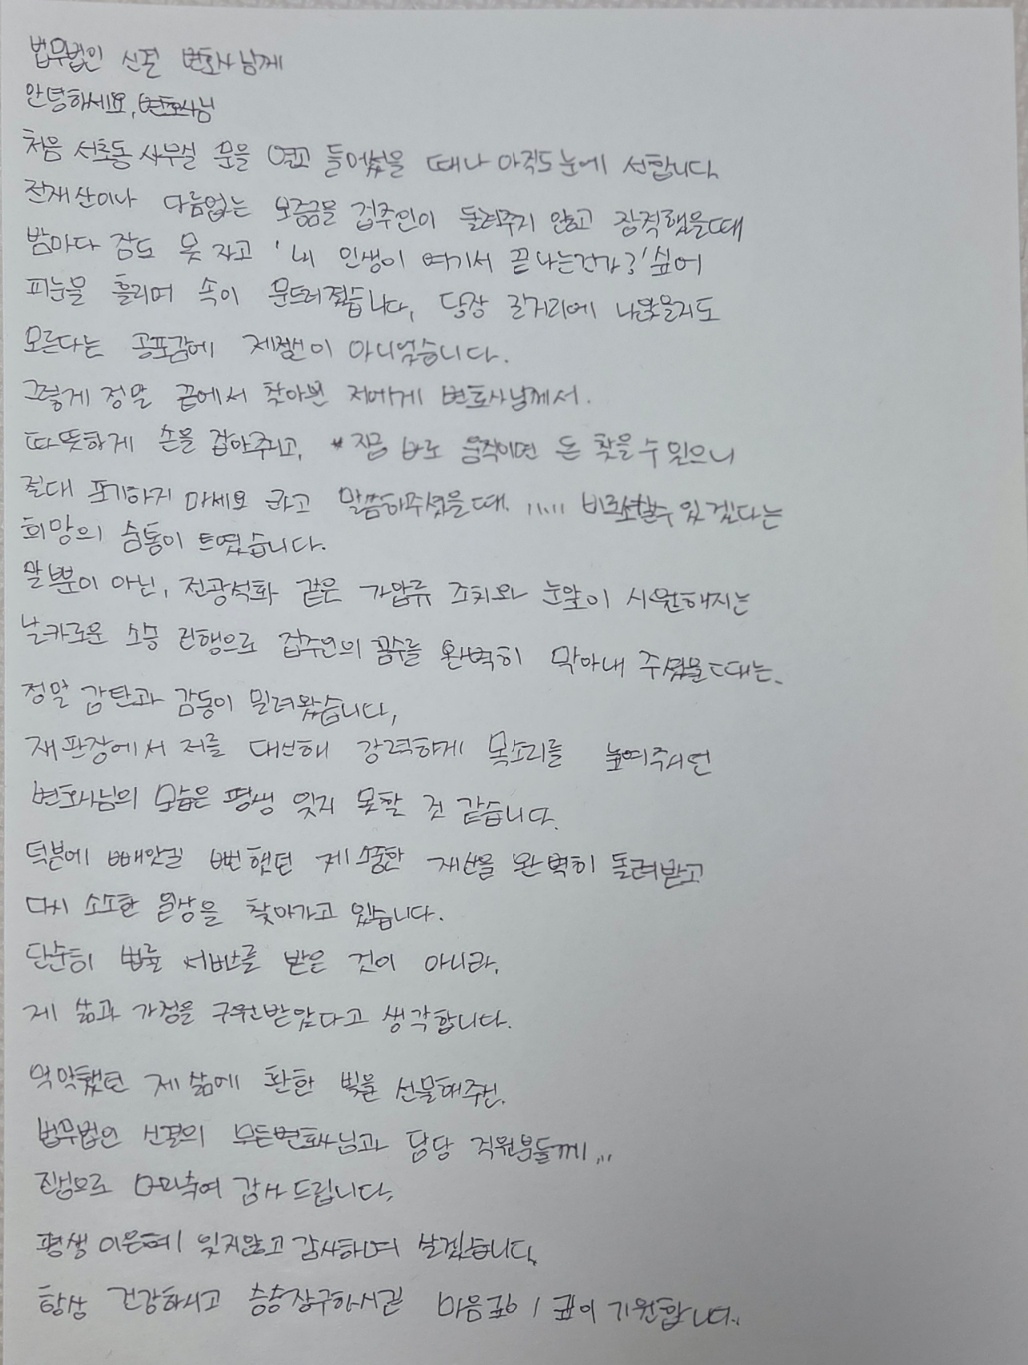 법무법인 신결 변호사님께
안녕하세요, 변호사님
처음 서초동 사무실 문을 열고 들어섰을 때나 아직도 눈에 선합니다.
전재산이나 다름없는 보증금을 집주인이 돌려주지 않고 잠적했을때
밤마다 잠도 못 자고 '내 인생이 여기서 끝나는건가?'싶어
피눈물 흘리며 속이 문드러졌습니다, 당장 길거리에 나앉을지도
모른다는 공포감에 제정신이 아니었습니다.
그렇게 정말 끝에서 찾아뵌 저에게 변호사님께서.
따뜻하게 손을 잡아주시고, "지금 바로 움직이면 돈 찾을 수 있으니
절대 포기하지 마세요 라고 말씀해주셨을때. ..... 비로소 살수 있겠다는
희망의 숨통이 트였습니다.
말뿐이 아닌, 전광석화 같은 가압류 조치와 눈앞이 시원해지는
날카로운 소송 진행으로 집주인의 꼼수를 완벽히 막아내 주셨을때는.
정말 감탄과 감동이 밀려왔습니다,
재판장에서 저를 대신해 강력하게 목소리를 높여주시던
변호사님의 모습은 평생 잊지 못할 것 같습니다.
덕분에 빼앗길 뻔했던 제 소중한 재산을 완벽히 돌려받고
다시 소소한 일상을 찾아가고 있습니다.
단순히 법률 서비스를 받은 것이 아니라,
제 삶과 가정을 구원받았다고 생각합니다.
막막했던 제 삶에 환한 빛을 선물해주신.
법무법인 신결의 모든변호사님과 담당 직원분들께...
진심으로 머리숙여 감사 드립니다.
평생 이은혜 잊지않고 감사하며 살겠습니다.
항상 건강하시고 승승장구하시길 마음깊이 깊이 기원합니다..